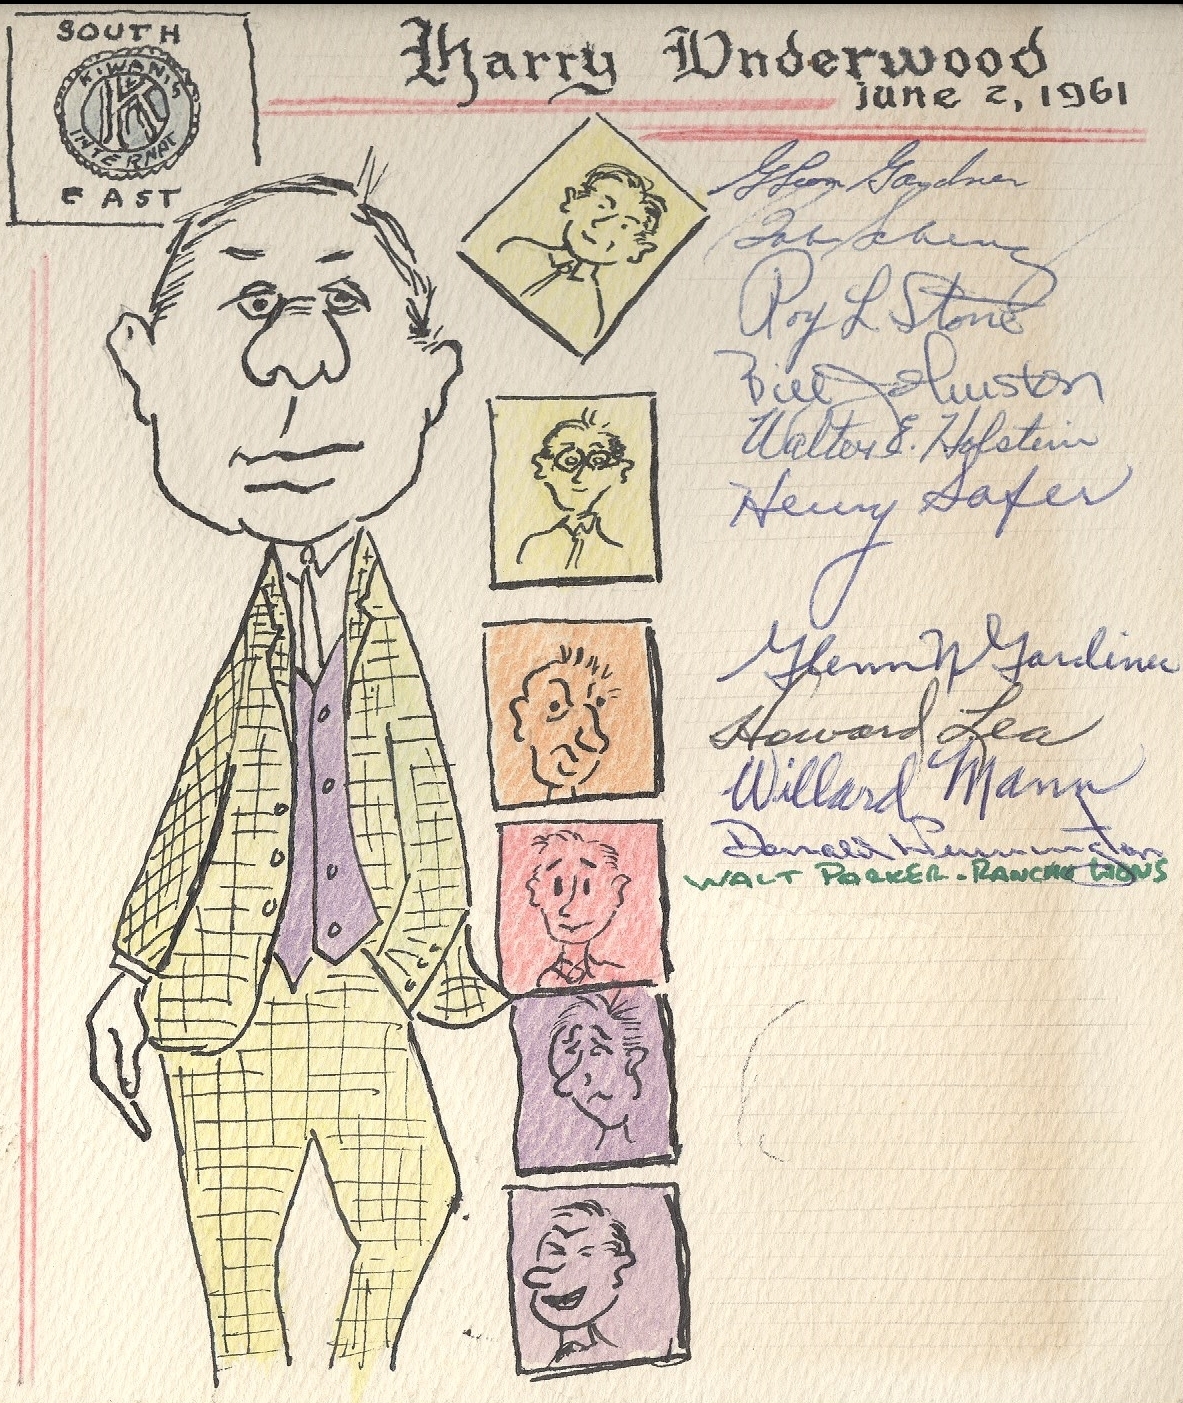 SOUTH
KIWANIS
INTERNAT
EAST
Harry Underwood
june 2, 1961
Glenn Gardner
Bob
Roy L Stone
Bill Johnston
Walter E. Hofstein
Henry Safer
Glenn N Gardiner
Howard Lea
Willard Mann
Donald Pennington
WALT PARKER - RANCHO LIONS